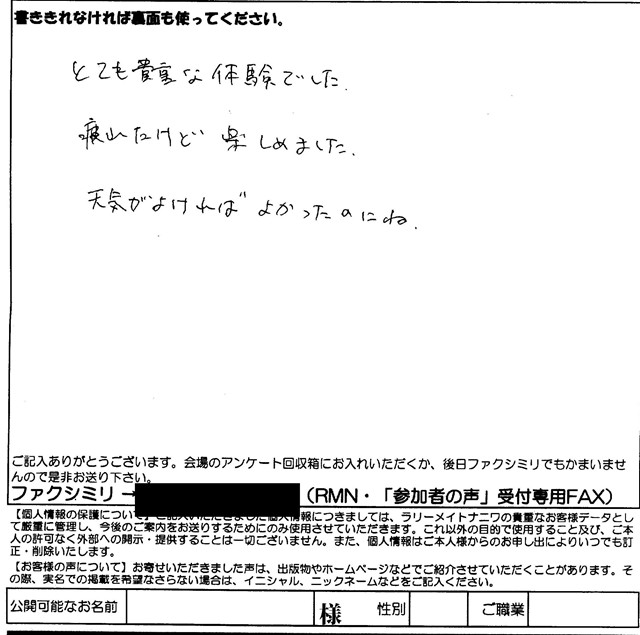 書ききれなければ裏面も使ってください。
とても貴重な体験でした.
疲れたけど 楽しめました.
天気がよければ よかったのにね.
ご記入ありがとうございます。会場のアンケート回収箱にお入れいただくか、後日ファクシミリでもかまいませ
んので是非お送り下さい。
ファクシミリ → （RMN・「参加者の声」受付専用FAX）
【個人情報の保護について】ご記入いただきました個人情報につきましては、ラリーメイトナニワの貴重なお客様データとし
て厳重に管理し、今後のご案内をお送りするためにのみ使用させていただきます。これ以外の目的で使用すること及び、ご本
人の許可なく外部への開示・提供することは一切ございません。また、個人情報はご本人様からのお申し出によりいつでも訂
正・削除いたします。
【お客様の声について】お寄せいただきました声は、出版物やホームページなどでご紹介させていただくことがあります。そ
の際、実名での掲載を希望なさらない場合は、イニシャル、ニックネームなどをご記入ください。
公開可能なお名前 様 性別 ご職業